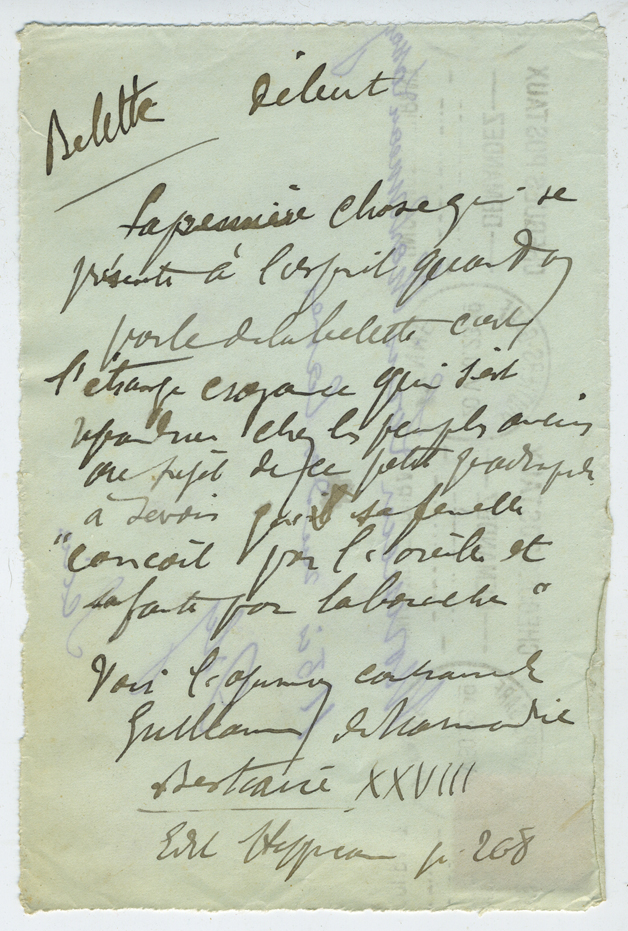 Belette début
La première chose qui se
présente à l'esprit quand on
parle de la belette c'est
l'étrange croyance qui s'est
répandue chez les peuples anciens
au sujet de ce petit quadrupède
à savoir que sa femelle
"conçoit par l'oreille et
enfante par la bouche"
Voir l'opinion contraire de
Guillaume de Normandie
Bestiaire XXVIII
Edit Hippeau p. 268
CHEQUES POSTAUX
DEMANDEZ